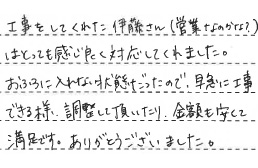 工事をしてくれた伊藤さん(営業なのかな?)
はとっても感じ良く対応してくれました。
おふろに入れない状態だったので、早急に工事
できる様、調整して頂いたり、金額も安くて
満足です。ありがとうございました。